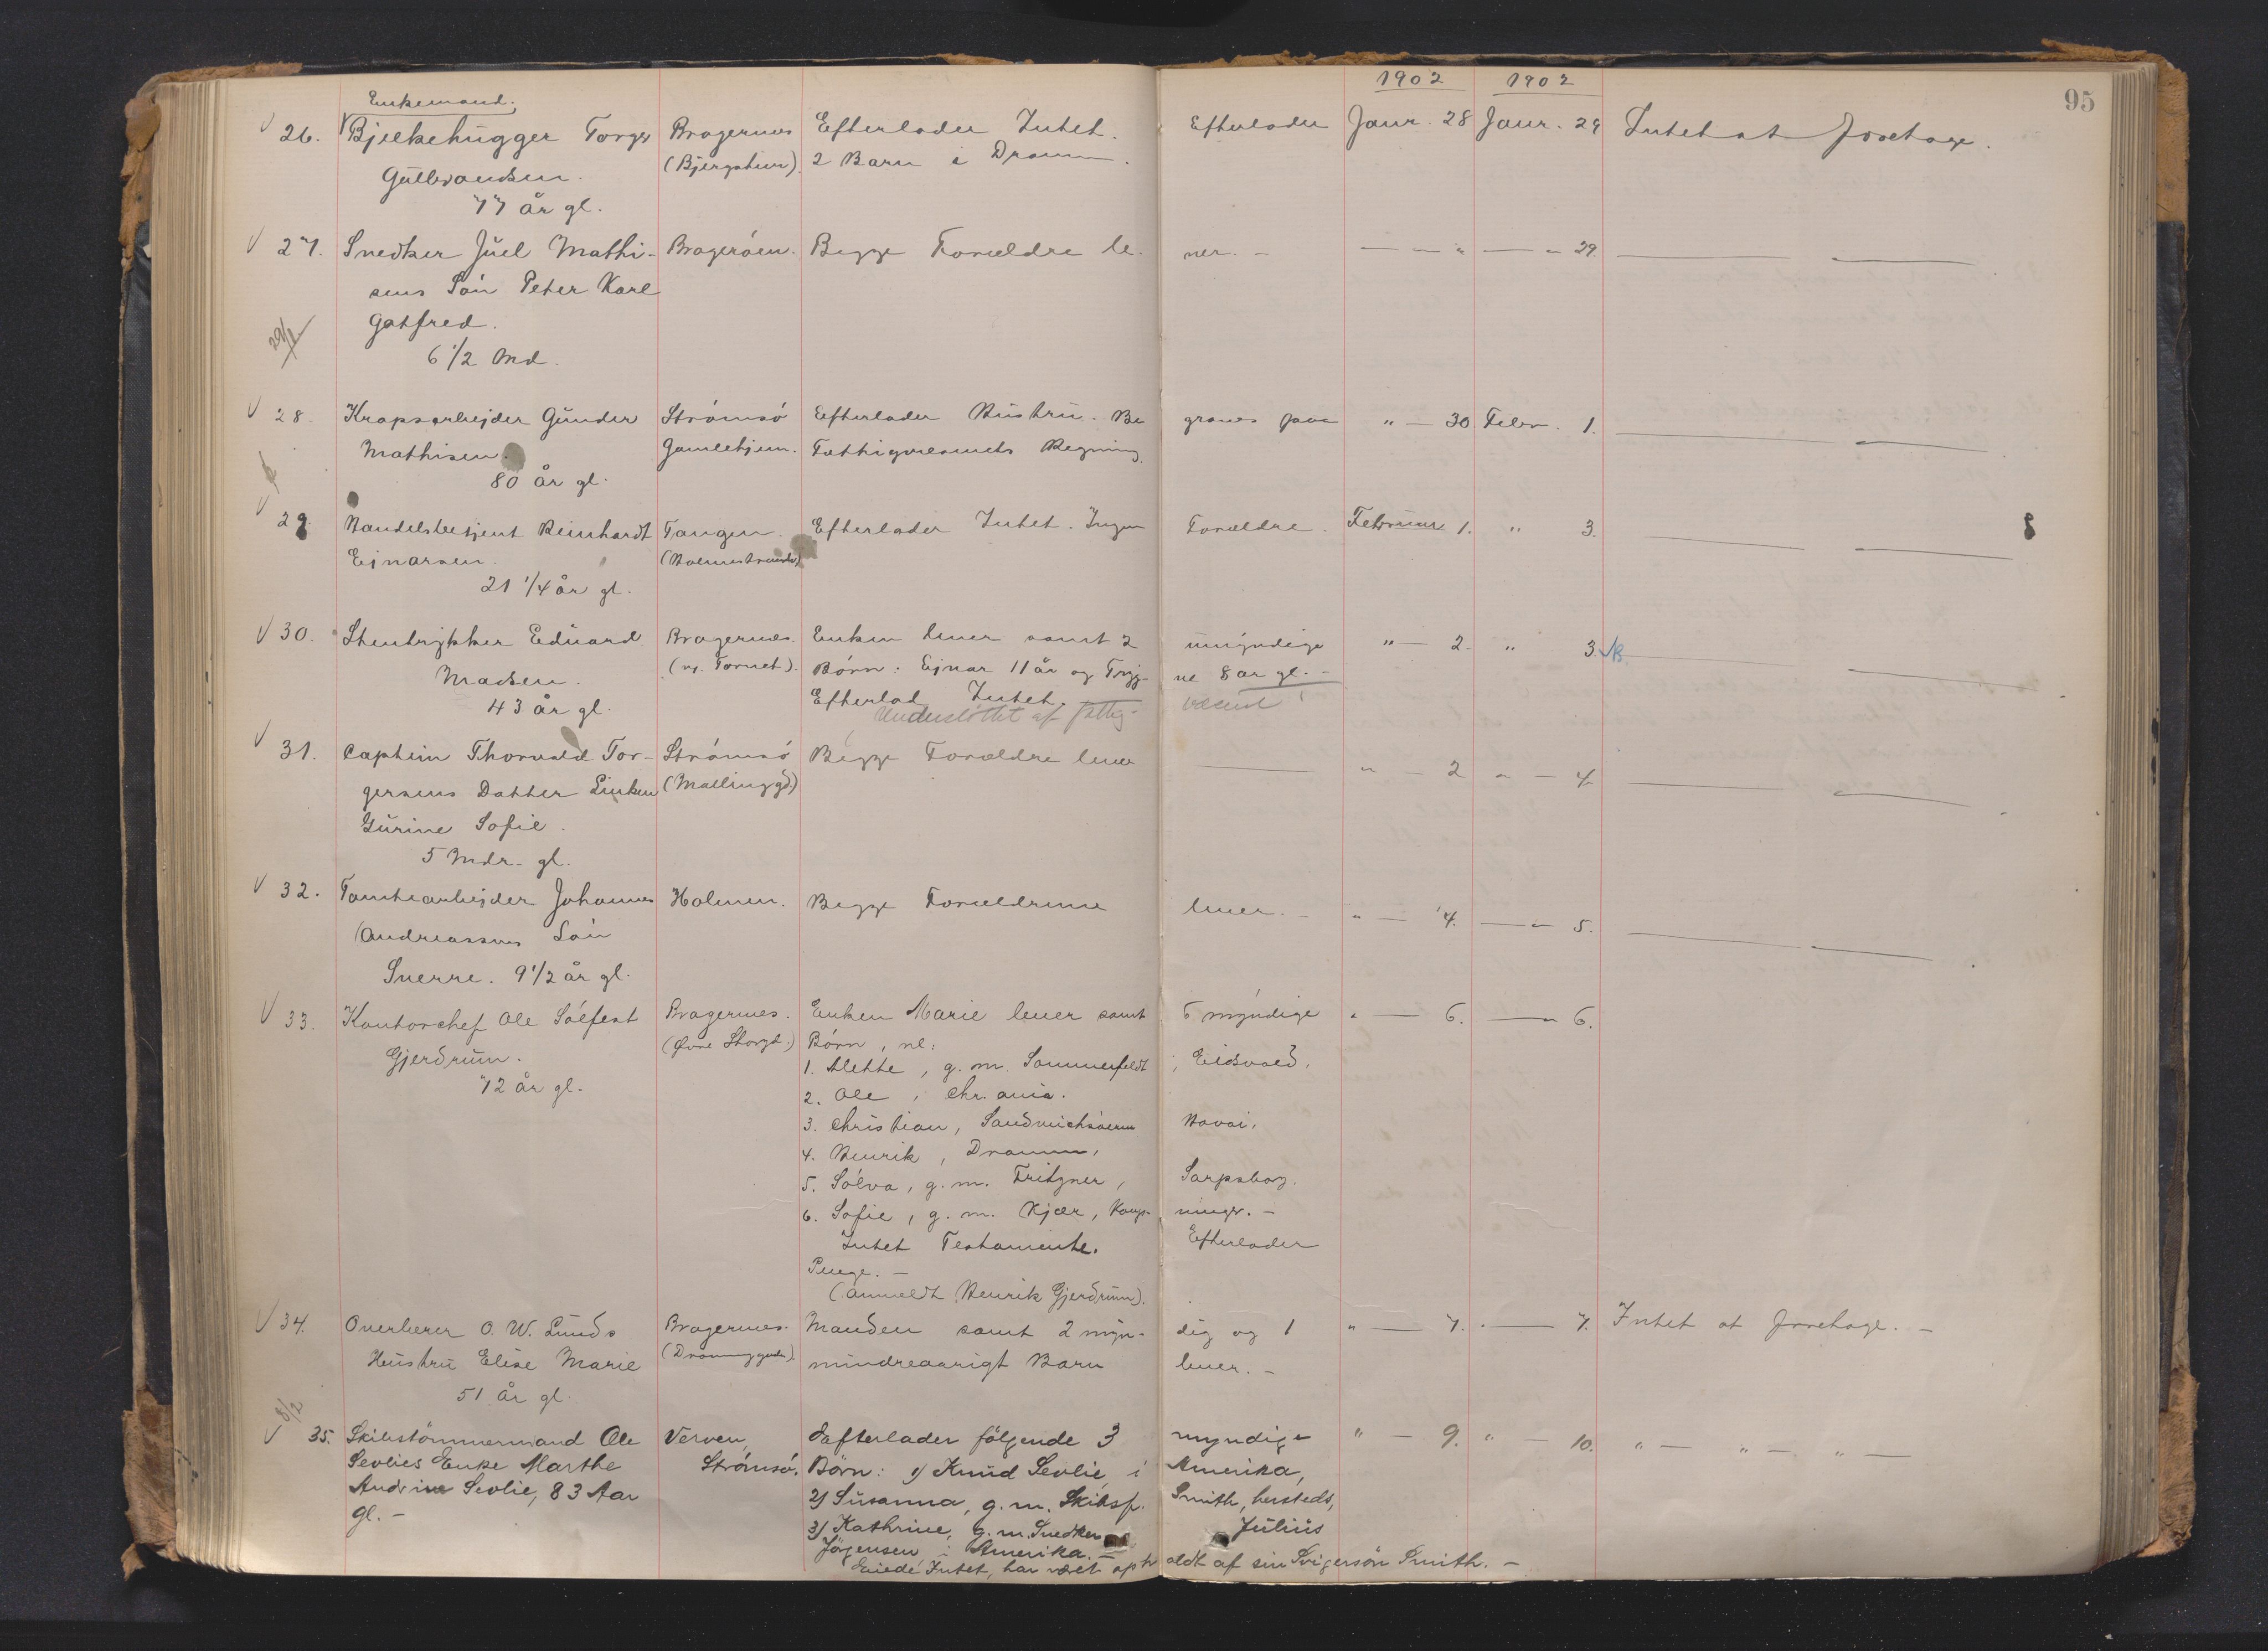 95
1902 1902
Enkemand.
26. Bjelkehugger Torger Bragernes Efterlader Intet. Efterlader Janr. 28 Janr. 29 Intet at foretage.
Gulbrandsen. (Bjergstien). 2 Barn i Dramm.
77 år gl.
27. Snedker Juel Mathi- Bragerøen. Begge Forældre le- ver. — — — " — " 29.
sens Søn Peter Karl
Gotfred.
6 1/2 Md.
28. Kropsarbejder Gunder Strømsø Efterlader Hustru. Be graves paa " — 30. Febr. 1.
Mathisen. Gamlehjem. Fattigvæsenets Regning.
80 år gl.
29. Handelsbetjent Reinhardt Tangen. Efterlader Intet. Ingen Forældre. Februar 1. " 3.
Ejnarsen. (Holmestrand)
21 1/4 år gl.
30. Stentrykker Eduard Bragernes. Enken lever samt 2 umyndige " — 2. " 3.
Madsen. (v. Tornet). Børn: Ejnar 11 år og Tryg- ve 8 år gl. —
43 år gl. Efterlad Intet.
Understøttet af fattig- væsenet
31. Captein Thorvald Tor- Strømsø Begge Forældre lever — " — 2 " — 4.
gersens Datter Linken (Mallinggd.)
Gurine Sofie.
5 Mdr. gl.
32. Tomtearbejder Johannes Holmen. Begge Forældrene lever. — " — 4. — " 5.
Andreassens Søn
Sverre. 9 1/2 år gl.
33. Kontorchef Ole Sølfest Bragernes. Enken Marie lever samt 6 myndige " — 6. — " 6.
Gjerdrum. (Øvre Storgt.) Børn, nl:
72 år gl. 1. Alette, g. m. Sommerfeldt, Eidsvold,
2. Ole, Chr.ania.
3. Christian, Sandwichsøerne Havai,
4. Henrik, Dramm,
5. Sølva, g. m. Fritzner, Sarpsborg.
6. Sofie, g. m. Kjær, Kongs- vinger. —
Intet Testamente. Efterlader
Penge. —
(Anmeldt Henrik Gjerdrum).
34. Overlærer O. W. Lunds Bragernes. Manden samt 2 myn- dig og 1 " — 7. " — 7. Intet at foretage. —
Hustru Elise Marie mindreaarigt Barn lever. —
51 år gl.
8/2
35. Skibstømmermand Ole Verven, Eafterlader følgende 3 myndige " — 9. " — 10. " — " — " —
Sevlies Enke Marthe Strømsø. Børn: 1) Knud Sevlie, i Amerika,
Andrine Sevlie, 83 Aar 2) Susanna, g. m. Skibsf. Smith, hersteds,
gl. — 3) Kathrine, g. m. Snedker Julius
Jørgensen i Amerika. —
Eiede Intet, har været opholdt af sin Svigersøn Smith. —